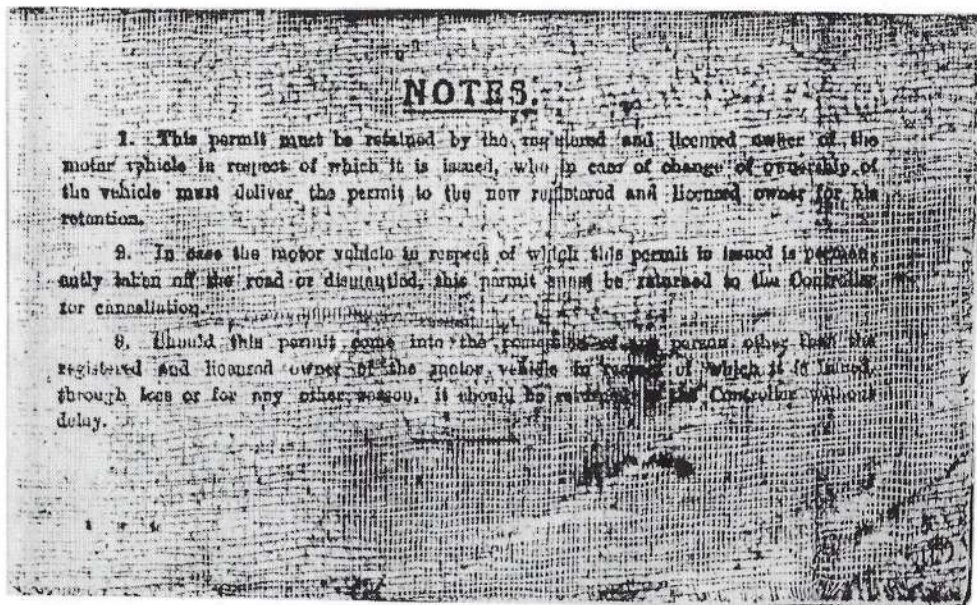 NOTES.
1. This permit must be retained by the registered and licensed owner of the
motor vehicle in respect of which it is issued, who in case of change of ownership of
the vehicle must deliver the permit to the new registered and licensed owner for his
retention.
2. In case the motor vehicle in respect of which this permit is issued is perman-
ently taken off the road or dismantled, this permit must be returned to the Controller
for cancellation.
3. Should this permit come into the possession of any person other than the
registered and licensed owner of the motor vehicle in respect of which it is issued,
through loss or for any other reason, it should be returned to the Controller without
delay.